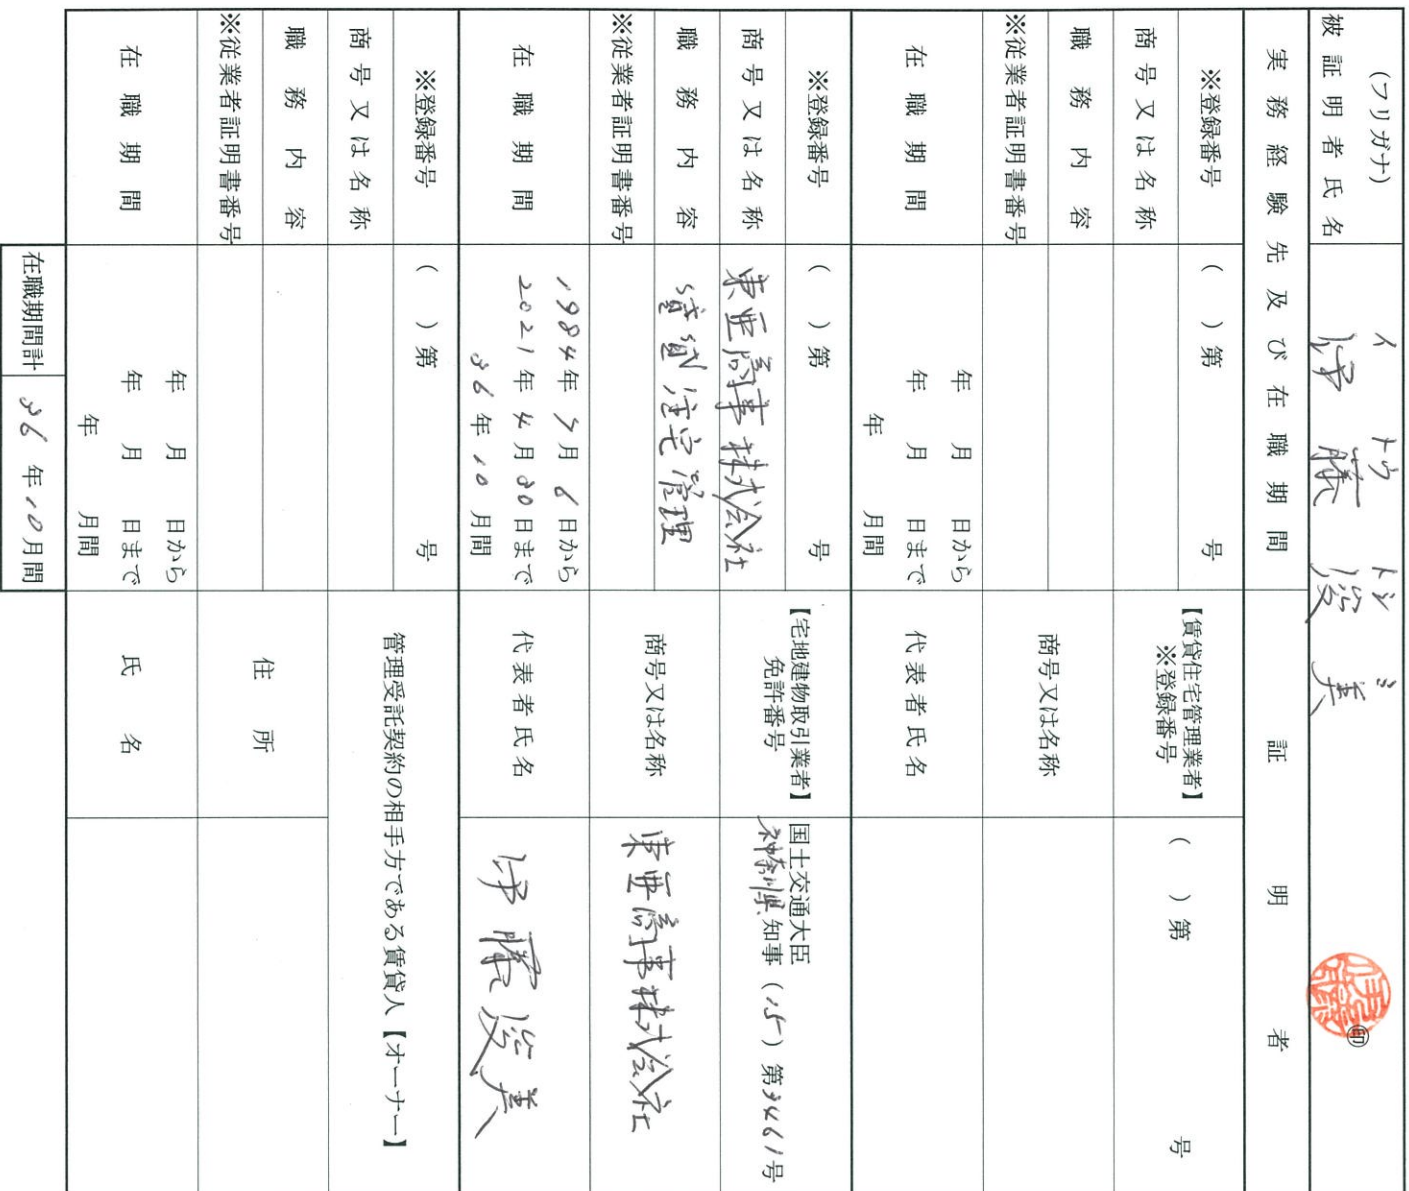 (フリガナ) イ トウ トシ ミ
被証明者氏名 伊藤俊美 ㊞
実務経験先及び在職期間 証明者
※登録番号 ( )第 号
商号又は名称
職務内容
※従業者証明書番号
在職期間
年 月 日から
年 月 日まで
年 月間
【賃貸住宅管理業者】
※登録番号 ( )第 号
商号又は名称
代表者氏名
※登録番号 ( )第 号
商号又は名称 東亜商事株式会社
職務内容 賃貸住宅管理
※従業者証明書番号
在職期間
1984年7月6日から
2021年4月30日まで
36年10月間
【宅地建物取引業者】
免許番号
国土交通大臣
神奈川県知事(15)第3461号
商号又は名称 東亜商事株式会社
代表者氏名 伊藤俊美
※登録番号 ( )第 号
商号又は名称
職務内容
※従業者証明書番号
在職期間
年 月 日から
年 月 日まで
年 月間
管理受託契約の相手方である賃貸人【オーナー】
住所
氏名
在職期間計 36年10月間